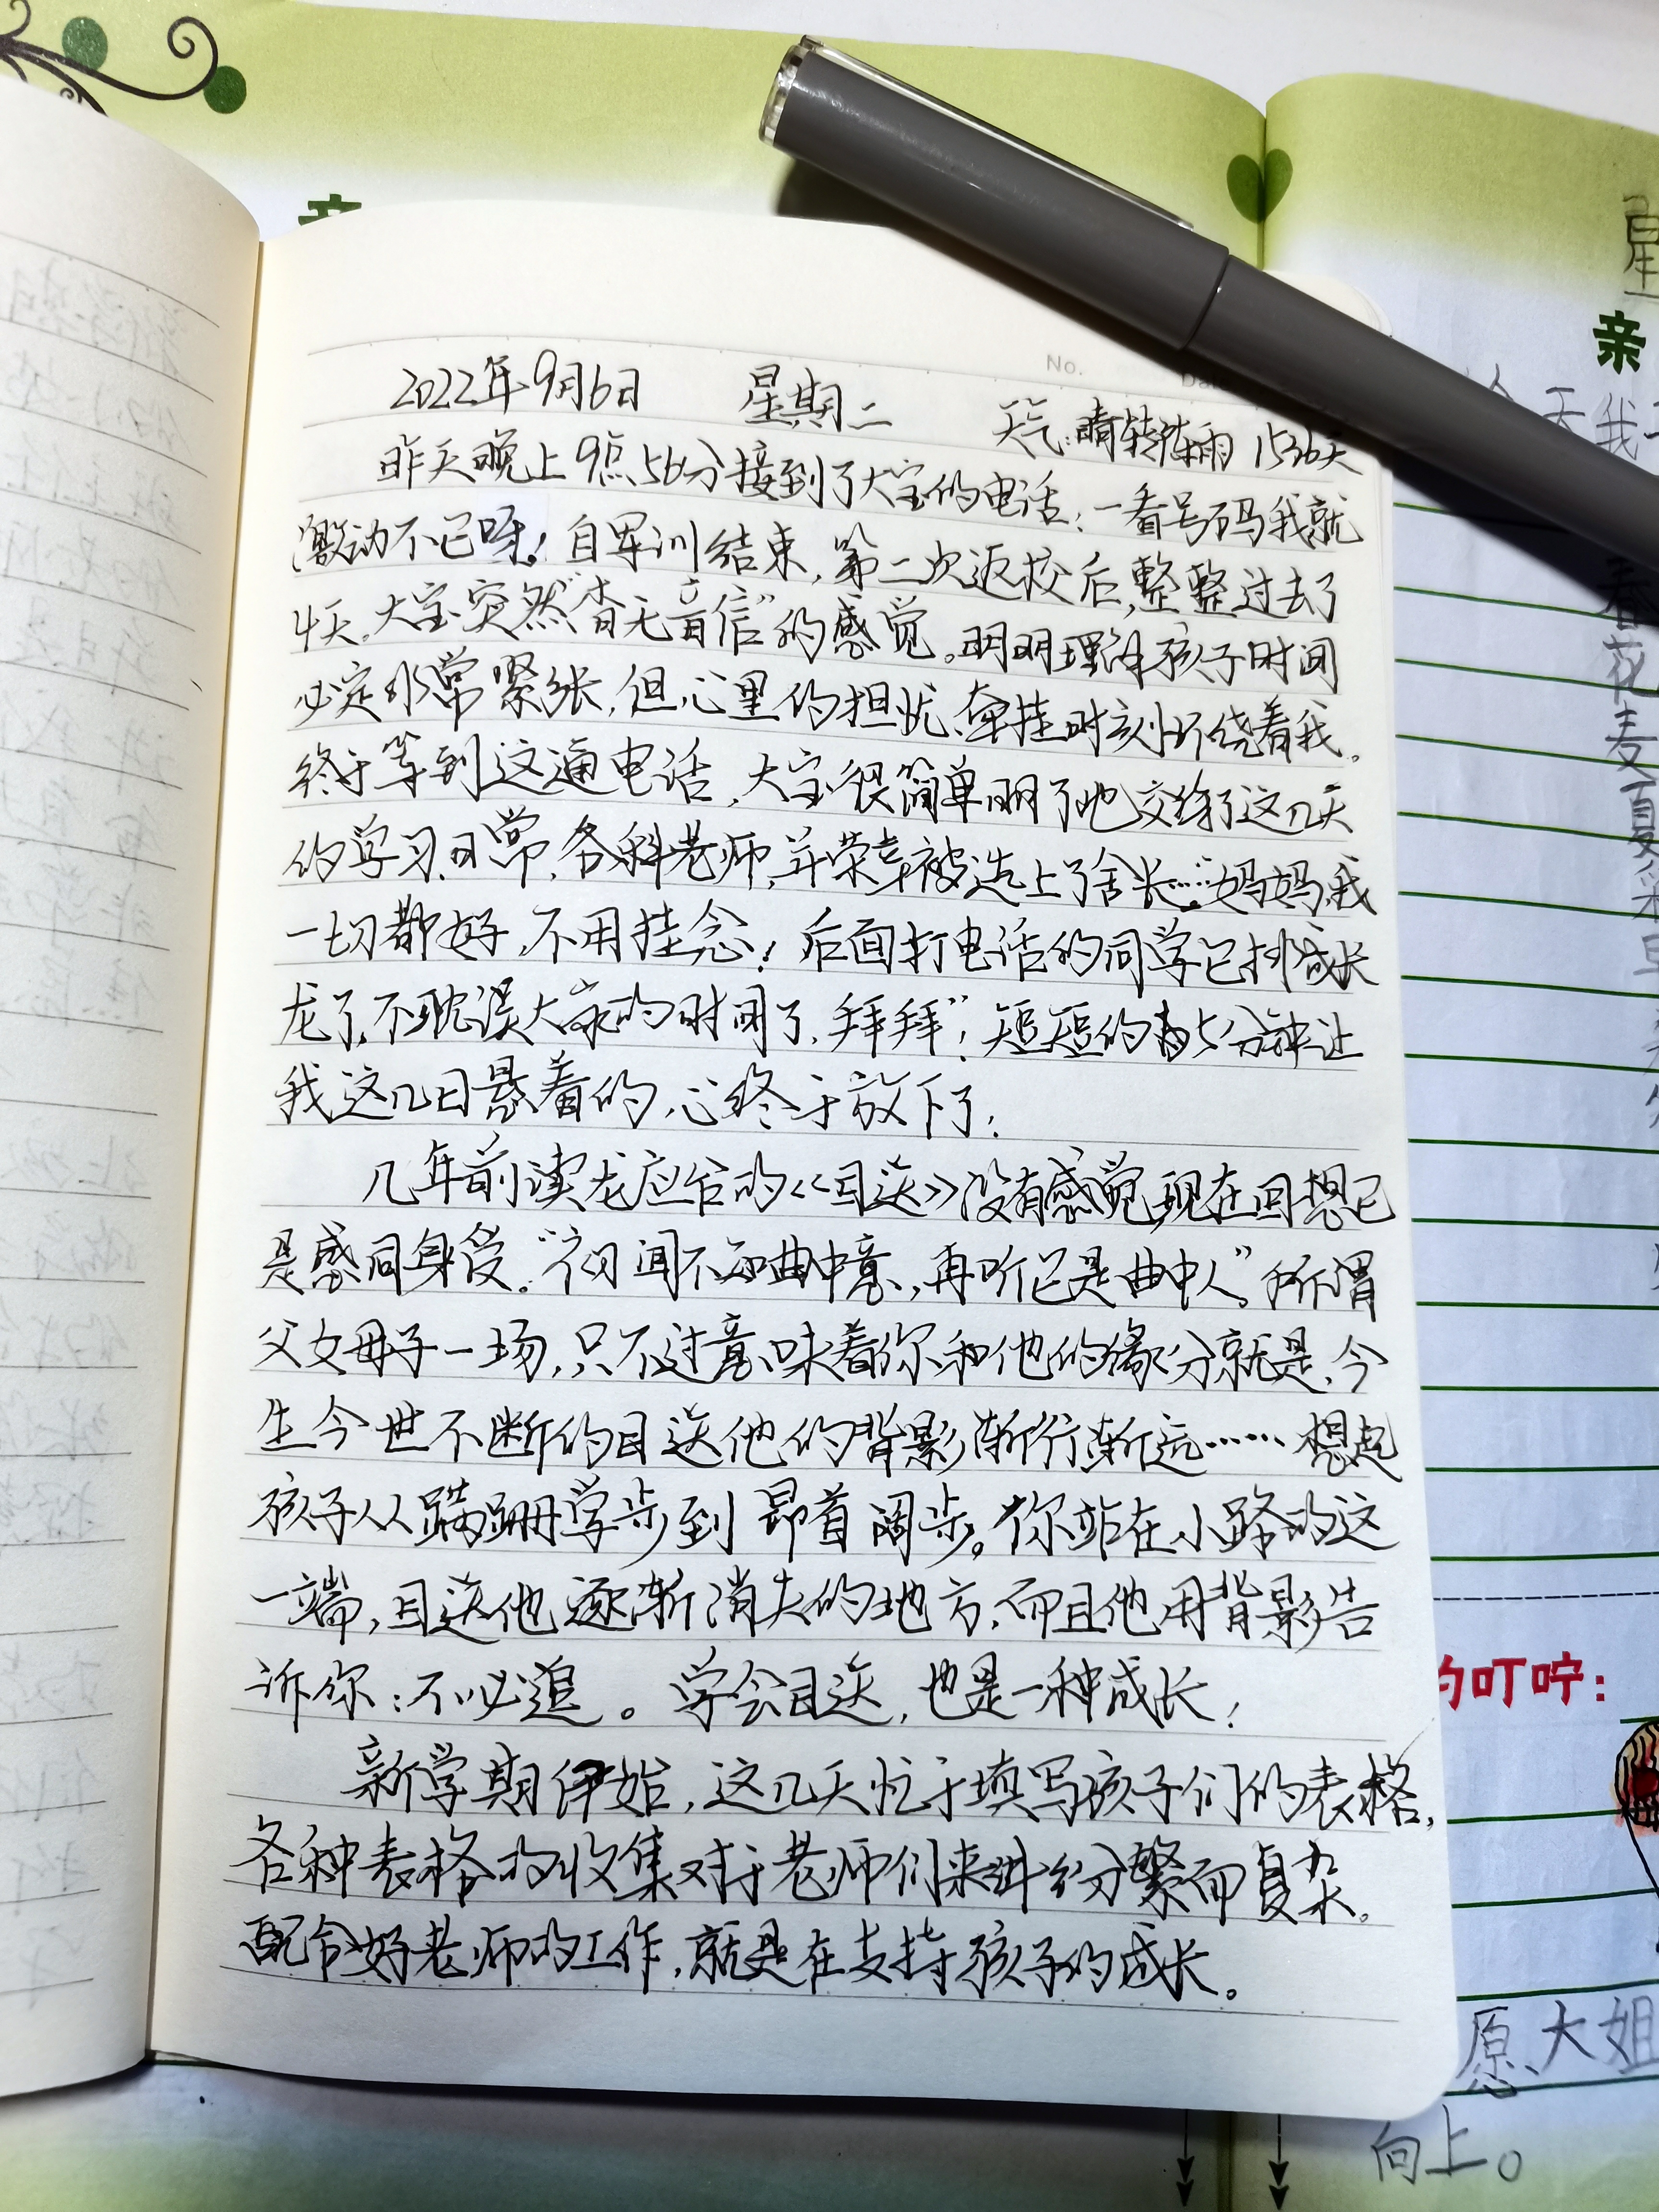 No.
2022年9月6日 星期二 天气:晴转阵雨 1536天
昨天晚上9点56分接到了大宝的电话,一看号码我就
激动不已呀!自军训结束,第二次返校后,整整过去了
4天。大宝突然"杳无音信"的感觉。明明理解孩子时间
必定非常紧张,但心里的担忧、牵挂时刻环绕着我。
终于等到这通电话,大宝很简单明了地交待了这几天
的学习日常,各科老师,并荣幸被选上了舍长……"妈妈,我
一切都好,不用挂念!后面打电话的同学已排成长
龙了,不耽误大家的时间了,拜拜"!短短的 5分钟让
我这几日悬着的心终于放下了!
几年前读龙应台的《目送》没有感觉,现在回想已
是感同身受。"初闻不知曲中意,再听已是曲中人"。所谓
父女母子一场,只不过意味着你和他的缘分就是,今
生今世不断的目送他的背影渐行渐远…… 想起
孩子从蹒跚学步到昂首阔步。你站在小路的这
一端,目送他逐渐消失的地方,而且他用背影告
诉你:不必追。学会目送,也是一种成长!
新学期伊始,这几天忙于填写孩子们的表格,
各种表格的收集对于老师们来讲纷繁而复杂。
配合好老师的工作,就是在支持孩子的成长。
亲
星
亲
天我
春花麦夏
的叮咛:
愿、大姐
向上。